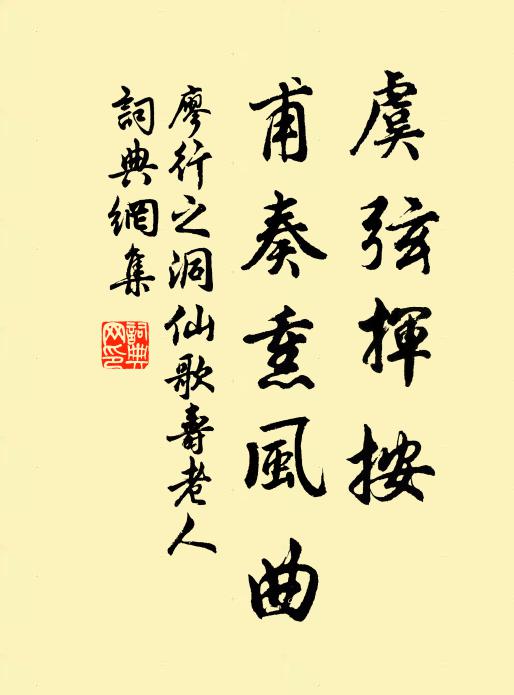 虞弦揮按
甫奏熏風曲
廖行之洞仙歌壽老人
詞典網集
詞典網印